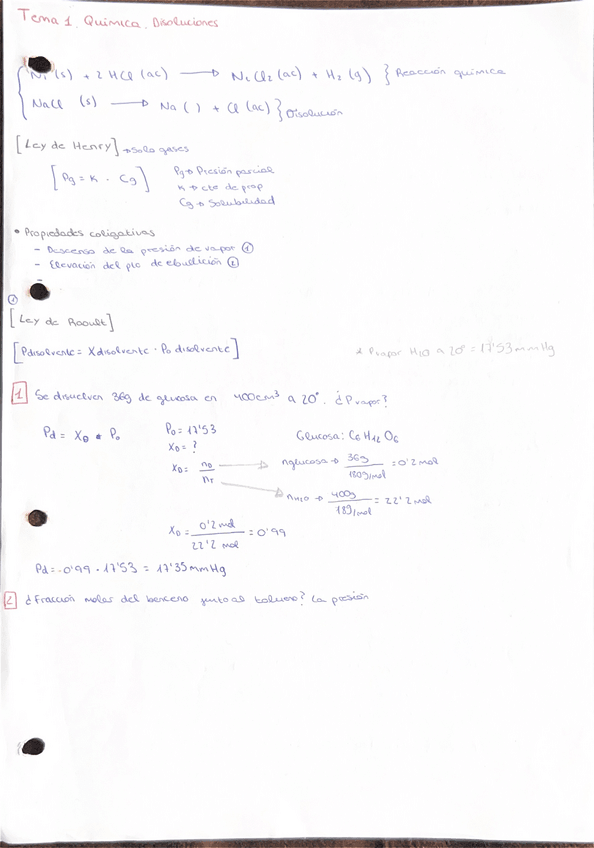 Tema 1. Química. Disoluciones
Ni (s) + 2 HCl (ac) → NiCl2 (ac) + H2 (g) } Reacción química
NaCl (s) → Na ( ) + Cl (ac) } Disolución
[Ley de Henry] → Solo gases
[Pg = K · Cg]
Pg → Presión parcial
K → cte de prop
Cg → Solubilidad
• Propiedades coligativas
- Descenso de la presión de vapor ①
- Elevación del pto de ebullición ②
①
[Ley de Raoult]
[Pdisolvente = Xdisolvente · Po disolvente]
* Pvapor H2O a 20° = 17'53 mmHg
1 Se disuelven 36g de glucosa en 400cm³ a 20°. ¿Pvapor?
Pd = XD · Po
Po = 17'53
XD = ?
XD = nD / nT
Glucosa: C6H12O6
nglucosa → 36g / 180g/mol = 0'2 mol
nH2O → 400g / 18g/mol = 22'2 mol
XD = 0'2 mol / 22'2 mol = 0'99
Pd = 0'99 · 17'53 = 17'35 mmHg
2 ¿Fracción molar del benceno junto al tolueno? La presión